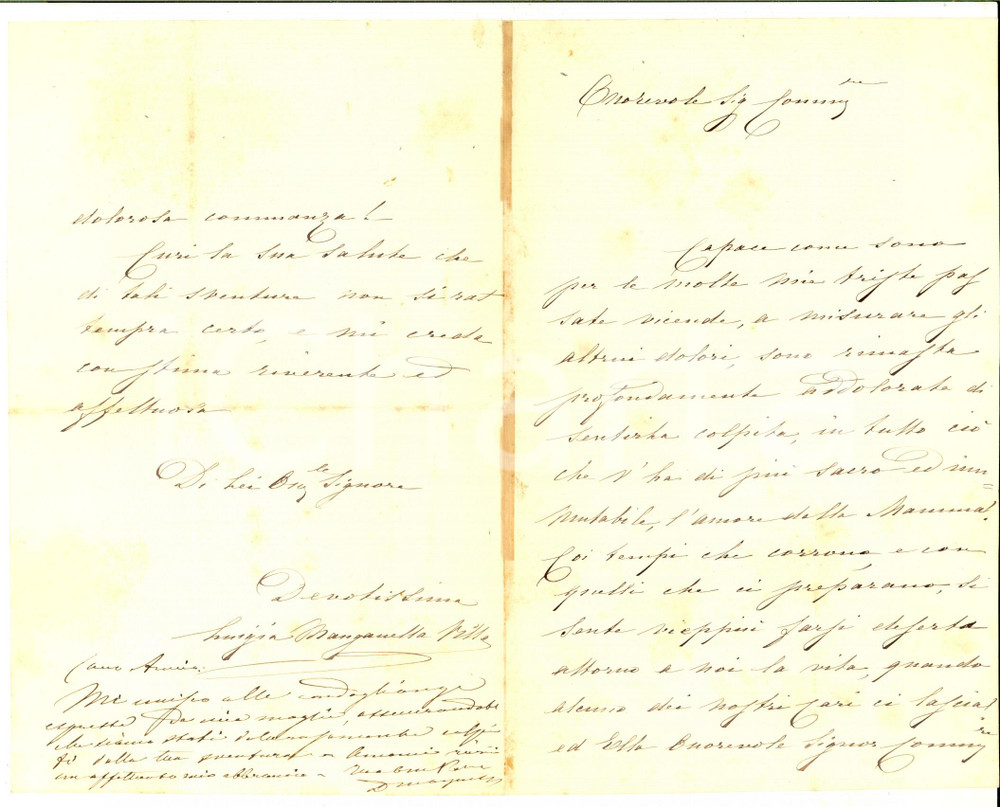 Onorevole Sig Comm.re
Capace come sono
per le molte mie triste pas
sate vicende, a misurare gli
altrui dolori, sono rimasta
profondamente addolorata di
sentirla colpita, in tutto ciò
che v'ha di più sacro ed im=
mutabile, l'amore della Mamma!
Coi tempi che corrono e con
quelli che ci preparano, si
sente vieppiù farsi deserta
attorno a noi la vita, quando
alcuno dei nostri cari ci lascia!
ed Ella Onorevole Signor Comm.re
dolorosa
Curi la sua salute che
di tali sventure non si rat
tempra certo, e mi creda
con stima riverente ed
affettuosa
Di Lei On.le Signore
Devotissima
Luigia Manganella Villa
Caro Amico.
Mi unisco alle condoglianze
espresse da mia moglie, assicurandoti
che siamo stati dolorosamente colpi
ti dalla tua sventura
un affettuoso mio abbraccio